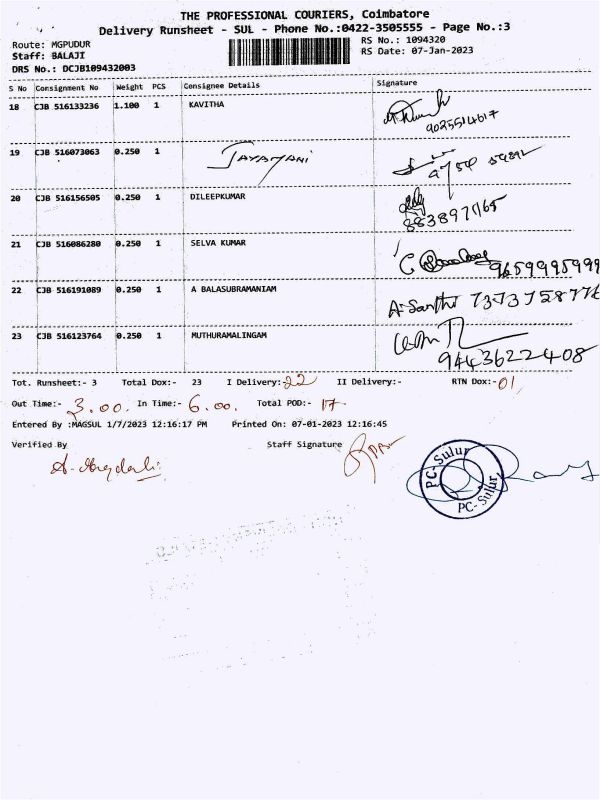 THE PROFESSIONAL COURIERS, Coimbatore
Delivery Runsheet - SUL - Phone No.:0422-3505555 - Page No.:3
Route: MGPUDUR
Staff: BALAJI
DRS No.: DCJB109432003
RS No.: 1094320
RS Date: 07-Jan-2023
S No Consignment No Weight PCS Consignee Details Signature
18 CJB 516133236 1.100 1 KAVITHA
9025514617
19 CJB 516073063 0.250 1 JAYAMANI
20 CJB 516156505 0.250 1 DILEEPKUMAR
8838971165
21 CJB 516086280 0.250 1 SELVA KUMAR
9659995999
22 CJB 516191089 0.250 1 A BALASUBRAMANIAM
A. Santhi 7373728776
23 CJB 516123764 0.250 1 MUTHURAMALINGAM
9443622408
Tot. Runsheet:- 3 Total Dox:- 23 I Delivery:- 22 II Delivery:- RTN Dox:- 01
Out Time:- 3.00. In Time:- 6.00. Total POD:- 17
Entered By :MAGSUL 1/7/2023 12:16:17 PM Printed On: 07-01-2023 12:16:45
Verified By Staff Signature
PC-Sulur
PC-Sulur